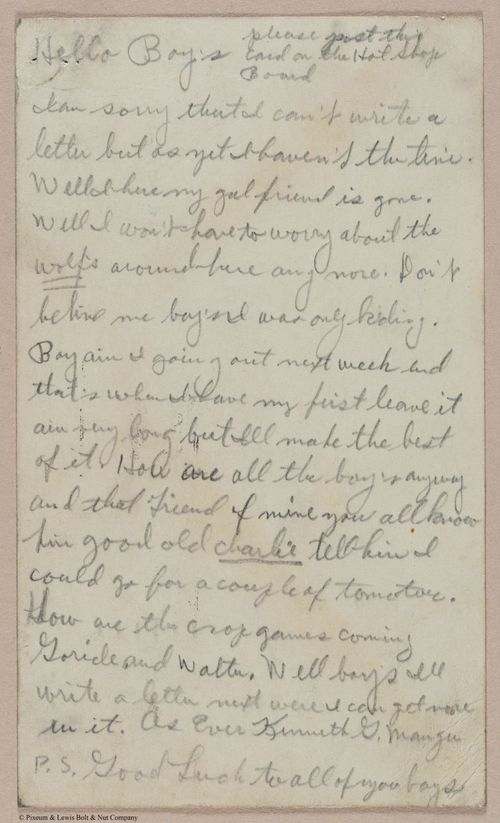 Hello Boy's please post this
card on the Hot Shop
Board
I am sorry that I can't write a
letter but as yet I haven't the time.
Well I here my gal friend is gone.
Well I won't have to worry about the
wolf's around here any more. Don't
belive me boy's I was only kiding.
Boy am I going out next week end
that's when I have my first leave it
ain very long but Ill make the best
of it. How are all the boy's anyway
and that friend of mine you all know
him good old charlie tell him I
could go for a couple of tomatoe.
How are the crap games coming
and Walter. Well boys Ill
write a letter next were I can get more
in it. As Ever Kenneth G.
P.S. Good Luck to all of you boys
© Pixeum & Lewis Bolt & Nut Company